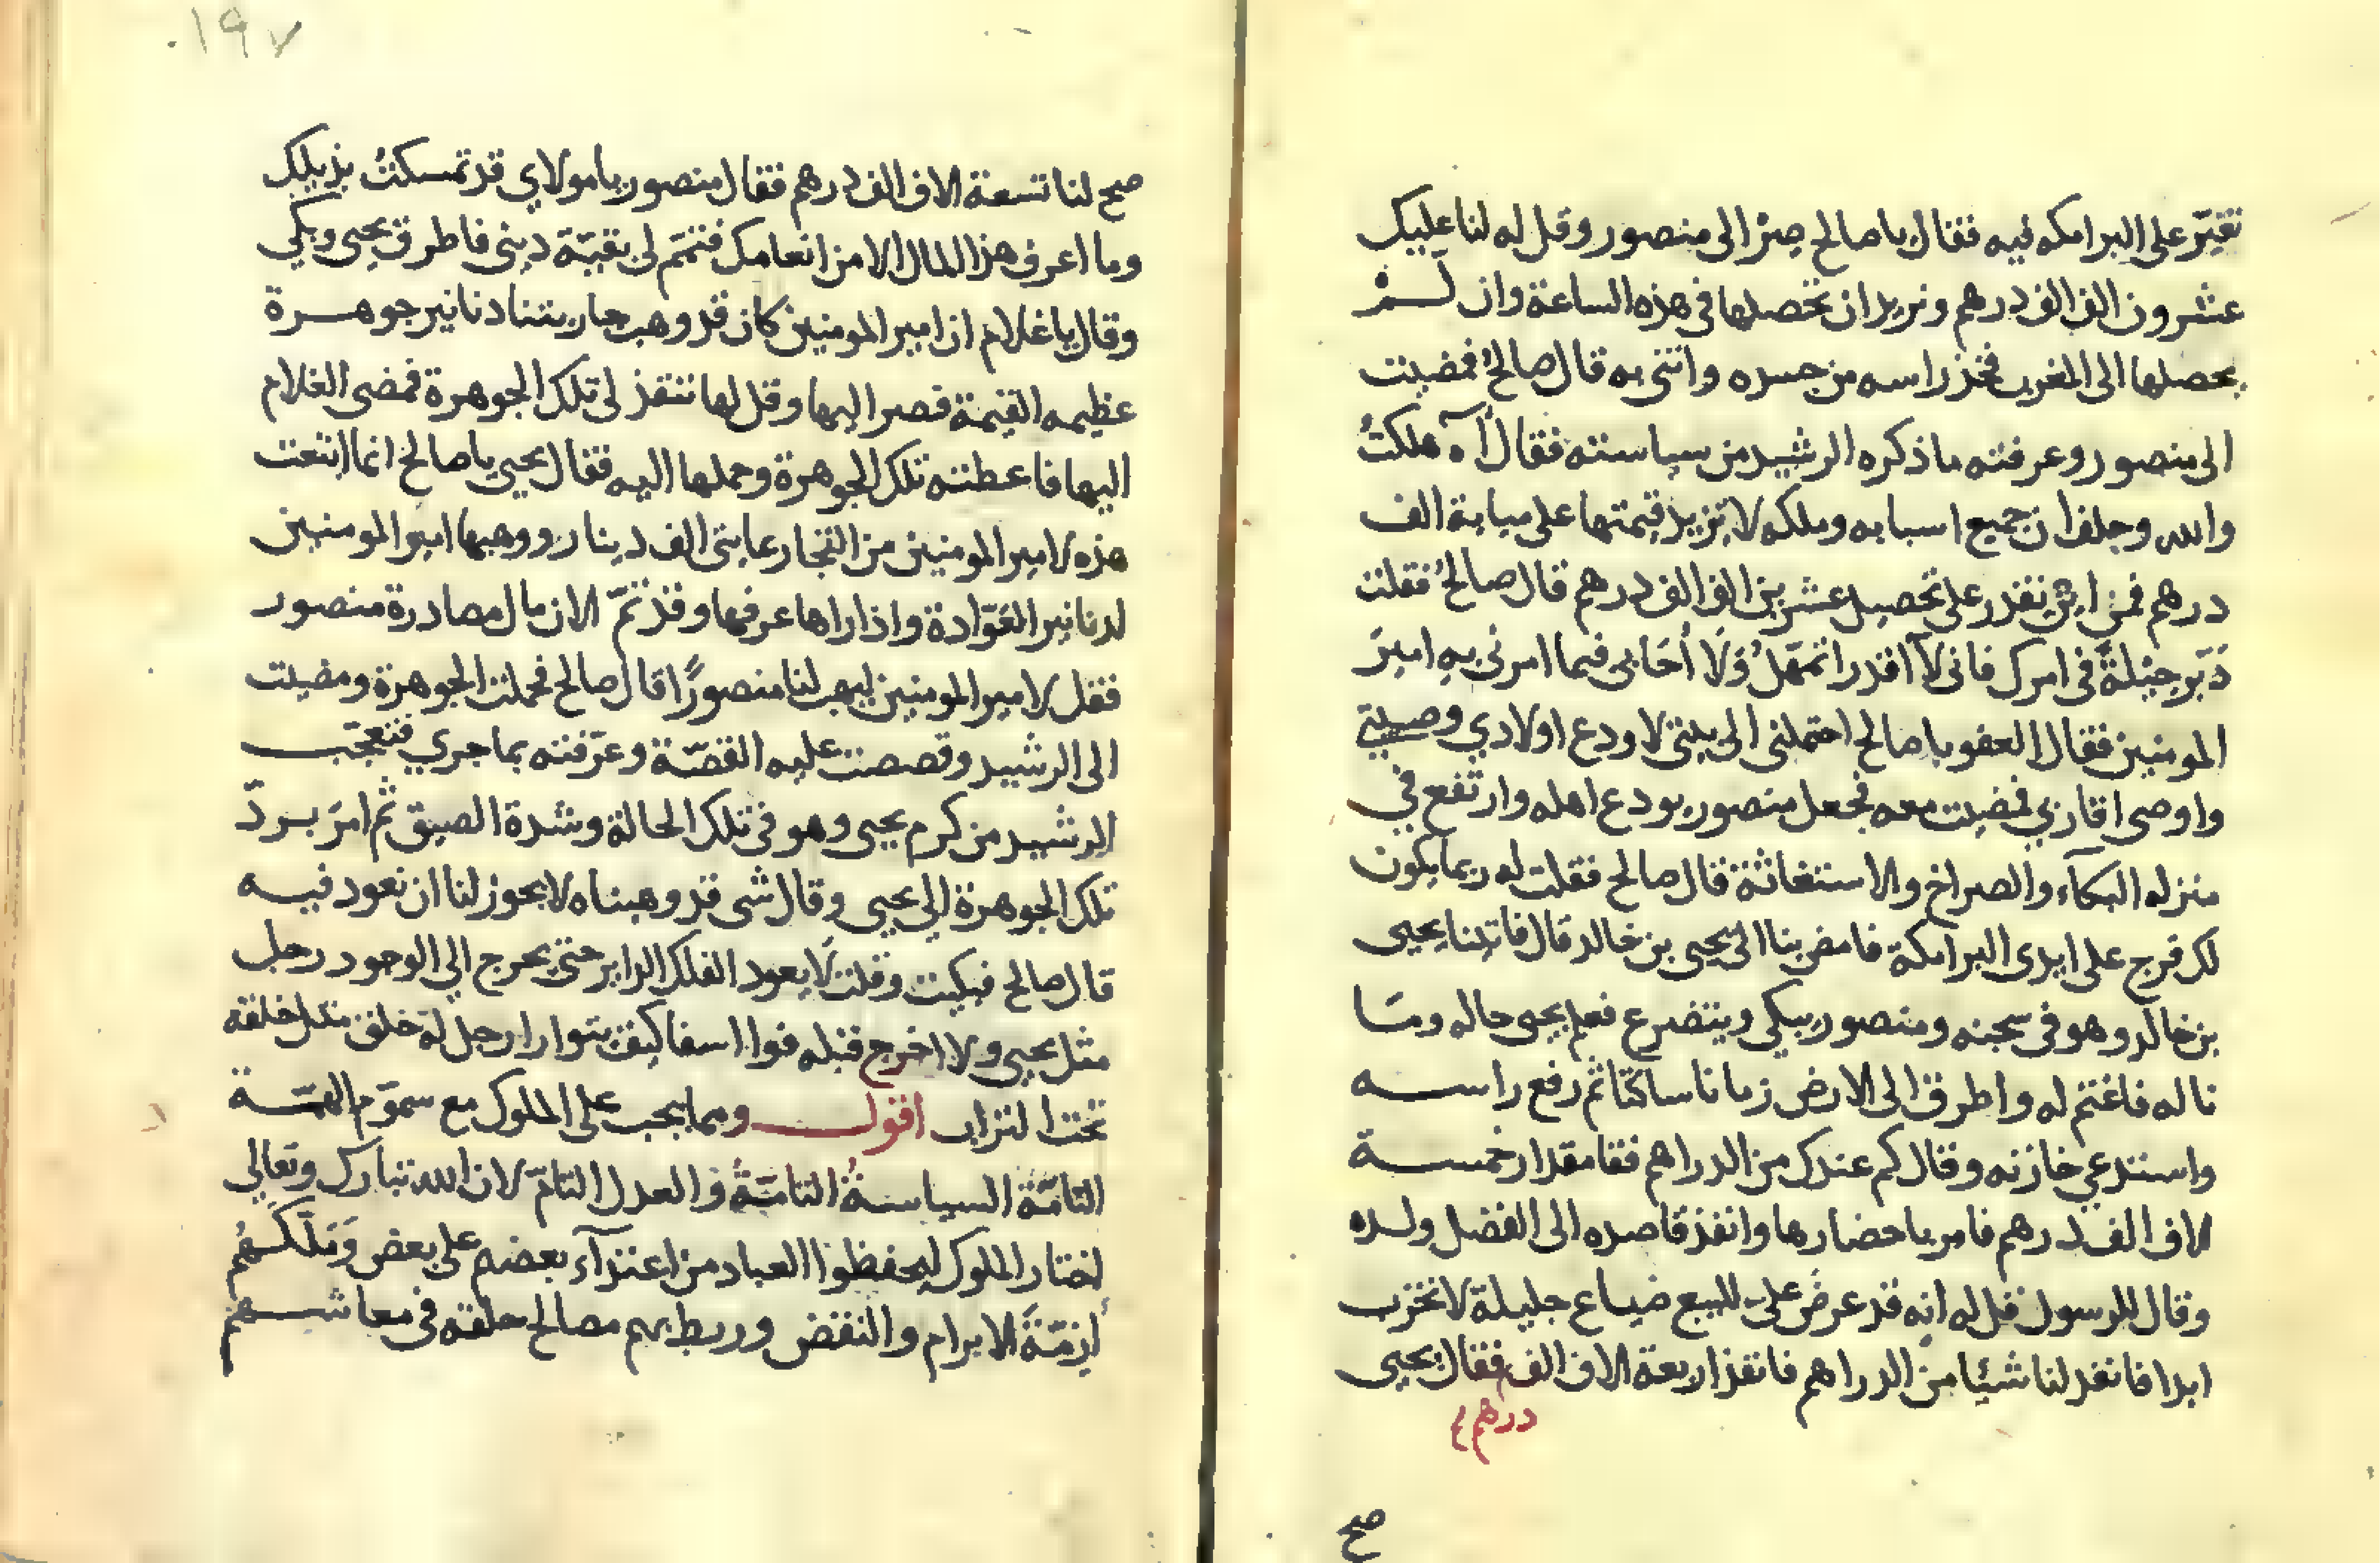 تغيّر على البرامكه فيه فقال يا صالح صِرْ الى منصور وقل له لنا عليك
عشرون الف الف درهم ونريد ان تحصلها في هذه الساعة وان لـم
يحصلها الى المغرب فخذ راسه من جسده واتنى به قال صالحُ فمضيت
الى منصور وعرفته ما ذكره الرشيد من سياسته فقال آه هلكتُ
والله وحلف ان جميع اسبابه وملكه لا تزيد قيمتها على مياية الف
درهم فمن اين نقدر على تحصيل عشرين الف الف درهم قال صالحُ فقلت
دَبّر حيْلةً في امرك فانى لا اقدر اتمهّلُ وَلَا أُحَابى فيما امرنى به اميرَ
المومنين فقال العفو يا صالح احتملنى الى بيتى لاودع اولادي وصبيتي
واوصى اقاربي فمضيت معه فجعل منصور يودع اهله وارتفع في
منزله البكآء والصراخ والاستغاثة قال صالح فقلت له ربما يكون
لك فرج على ايدى البرامكة فامض بنا الى يحيى بن خالد قال فاتينا يحيى
بن خالد وهو في سجنه ومنصور يبكي ويتضرع فعلم يحيى حاله ومـا
ناله فاغتم له واطرق الى الارض زمانا ساكتا ثم رفع راسـه
واستدعي خازنه وقال كم عندك من الدراهم فقا مقدار خمسـة
الاف الف درهم فامر باحضارها وانفذ قاصده الى الفضل ولـده
وقال للرسول قل له انه قد عرض علي للبيع ضياع جليلة لا تخرب
ابدا فانفد لنا شيًا من الدراهم فانفذ اربعة الاف الف فقال يحيى
درهم ٤
صح
١٩٧
صح لنا تسعة الاف الف درهم فقال منصور يا مولاي قد تمسكتُ بذيلك
وما اعرف هذا المال الا من انعامك فتمّم لى بقيّة ديني فاطرق يحيى وبكي
وقال يا غلام ان امير المومنين كان قد وهب جاريتنا دنانير جوهـرة
عظيمه القيمة فصر اليها وقل لها تنفذ لى تلك الجوهرة فمضى الغلام
اليها فاعطته تلك الجوهرة وحملها اليه فقال يحيى يا صالح انما ابتعت
هذه لامير المومنين من التجار بمايتى الف دينار ووهبها امير المومنين
لدنانير العَوّادة واذا راها عرفها وقد تمّ الان مال مصادرة منصور
فقل لامير المومنين ليهب لنا منصورًا قال صالح فحملت الجوهرة ومضيت
الى الرشيد وقصصت عليه القصّة وعرّفته بما جري فتعجّب
الرشيد من كرم يحيى وهو في تلك الحالة وشدة الضيق ثم امرَ بـردّ
تلك الجوهرة الي يحيى وقال شى قد وهبناه لا يجوز لنا ان نعود فيـه
قال صالح فبكيت وقلت لا يعود الفلك الداير حتي يخرج الي الوجود رجل
مثل يحيى ولا اخرج قبله فوا اسفا كيف يتوارا رجل له خلق مثل خلقه
تحت التراب اقول ومما يجب على الملوك مع سموّ الهمّـة
التامّة السياسةُ التامّةُ والعدل التامّ لان الله تبارك وتعالي
اختار الملوك ليحفظوا العباد من اعتدآء بعضهم على بعض وَمَلّكـهُم
أَزِمّةَ الابرام والنقض وربط بهم مصالح خلقه في معاشـهم